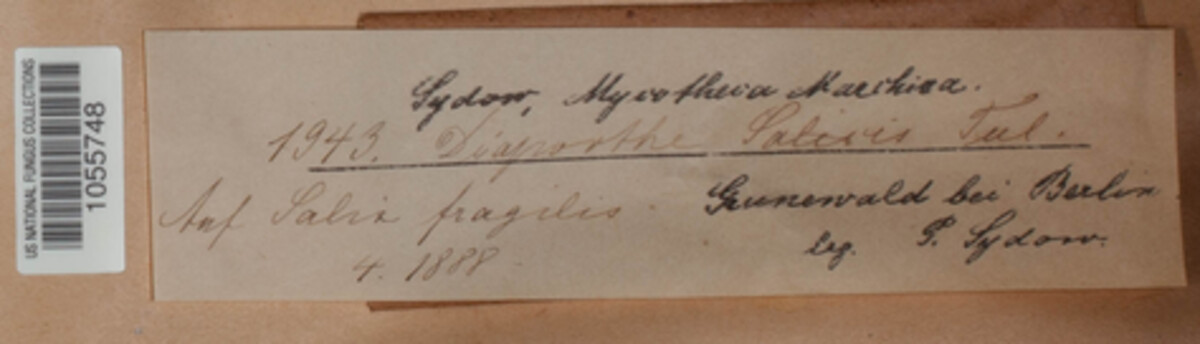 US NATIONAL FUNGUS COLLECTIONS
1055748
Sydow, Mycotheca Marchica.
1943. Diaporthe Salicis Tul.
Auf Salix fragilis
4. 1888
Grunewald bei Berlin
leg. P. Sydow.